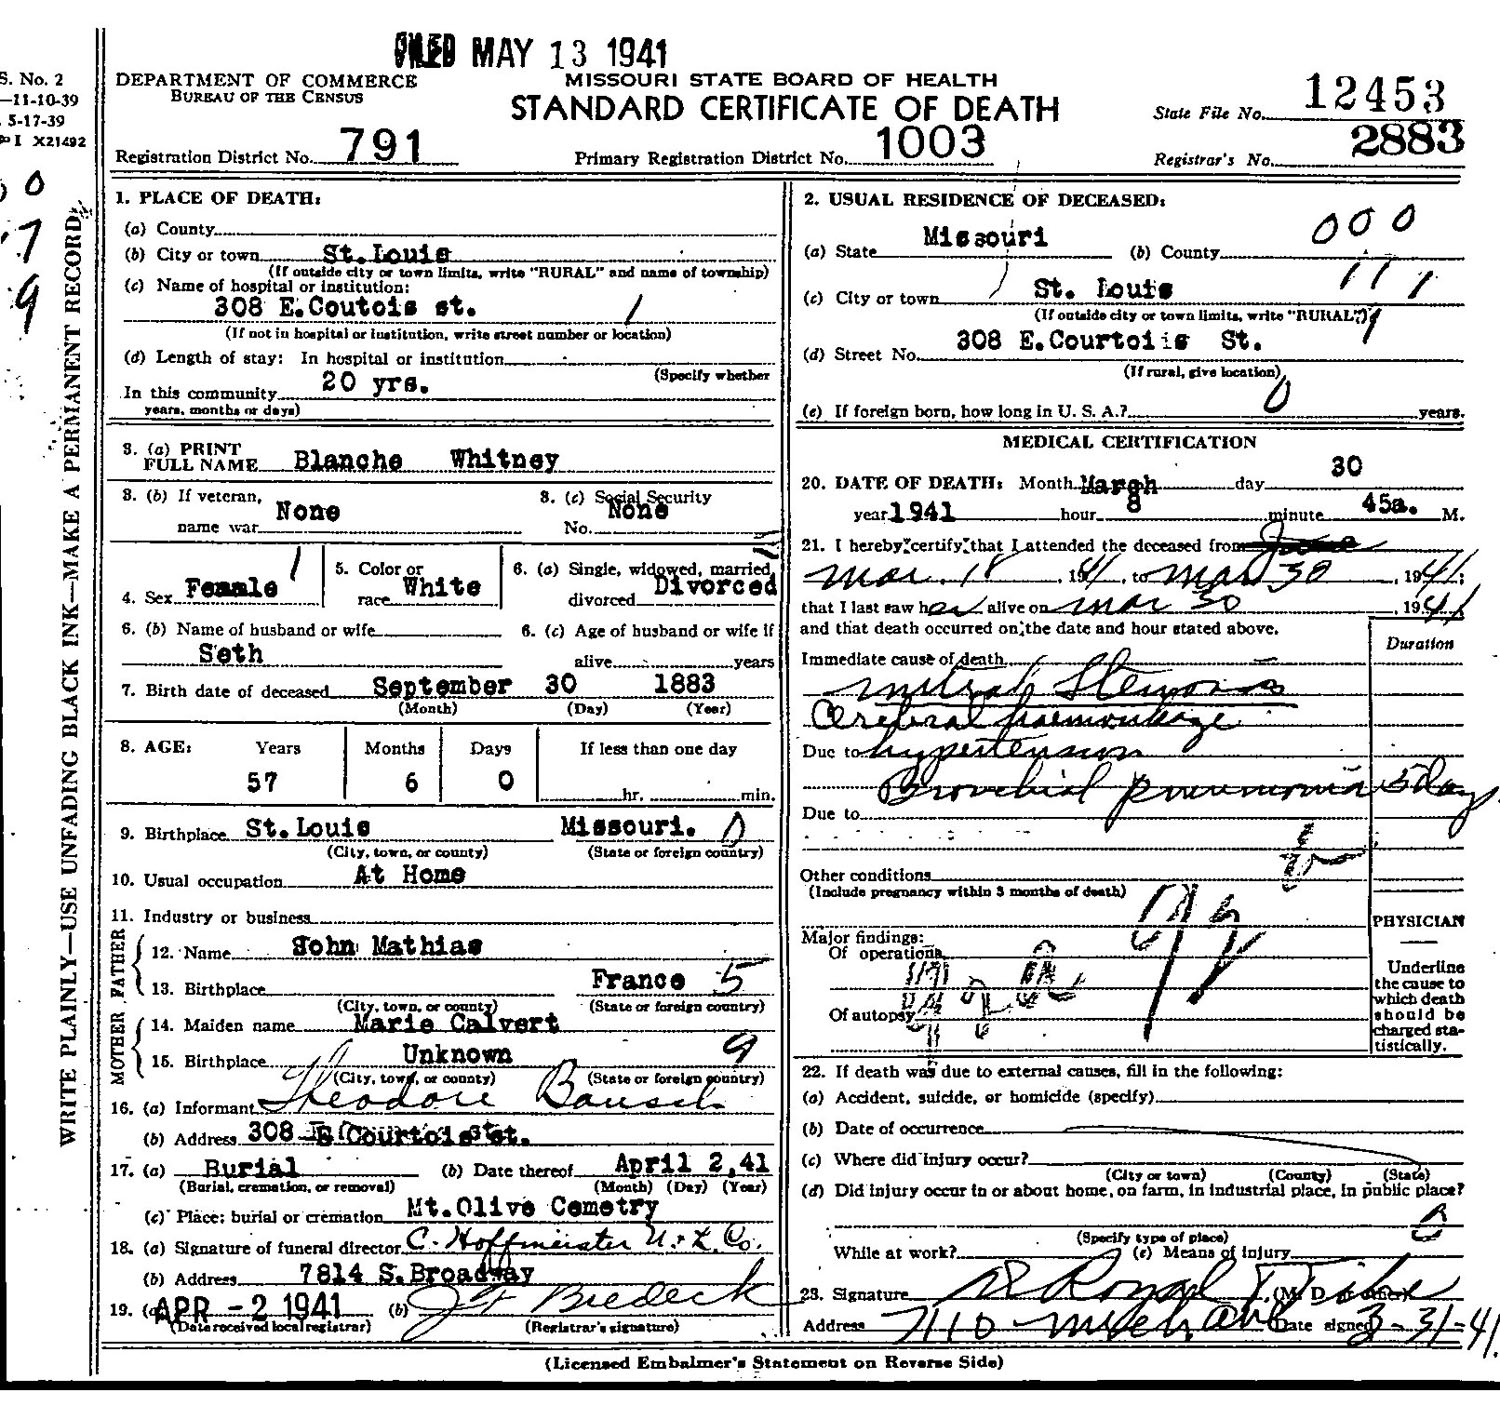 FILED MAY 13 1941
S. No. 2
—11-10-39
5-17-39
I X21492
DEPARTMENT OF COMMERCE
BUREAU OF THE CENSUS
MISSOURI STATE BOARD OF HEALTH
STANDARD CERTIFICATE OF DEATH
State File No. 12453
Registration District No. 791
Primary Registration District No. 1003
Registrar's No. 2883
0
7
9
WRITE PLAINLY—USE UNFADING BLACK INK—MAKE A PERMANENT RECORD
1. PLACE OF DEATH:
(a) County
(b) City or town St. Louis
(If outside city or town limits, write "RURAL" and name of township)
(c) Name of hospital or institution:
308 E.Coutois st. 1
(If not in hospital or institution, write street number or location)
(d) Length of stay: In hospital or institution
(Specify whether
In this community 20 yrs.
years, months or days)
3. (a) PRINT
FULL NAME Blanche Whitney
3. (b) If veteran,
name war None
3. (c) Social Security
No. None
4. Sex Female 1
5. Color or
race White
6. (a) Single, widowed, married,
divorced Divorced
6. (b) Name of husband or wife
Seth
6. (c) Age of husband or wife if
alive years
7. Birth date of deceased September 30 1883
(Month) (Day) (Year)
8. AGE: Years Months Days If less than one day
57 6 0 hr. min.
9. Birthplace St. Louis Missouri. 0
(City, town, or county) (State or foreign country)
10. Usual occupation At Home
11. Industry or business
FATHER
12. Name John Mathias
13. Birthplace France 5
(City, town, or county) (State or foreign country)
MOTHER
14. Maiden name Marie Calvert
15. Birthplace Unknown 9
(City, town, or county) (State or foreign country)
16. (a) Informant Theodore Bausch
(b) Address 308 E Courtois st.
17. (a) Burial (b) Date thereof April 2,41
(Burial, cremation, or removal) (Month) (Day) (Year)
(c) Place: burial or cremation Mt.Olive Cemetry
18. (a) Signature of funeral director C. Hoffmeister U. & L. Co.
(b) Address 7814 S.Broadway
19. (a) APR -2 1941 (b) Bredeck
(Date received local registrar) (Registrar's signature)
2. USUAL RESIDENCE OF DECEASED:
000
(a) State Missouri (b) County
111
(c) City or town St. Louis
(If outside city or town limits, write "RURAL")
9
(d) Street No. 308 E.Courtois St.
(If rural, give location)
0
(e) If foreign born, how long in U. S. A.? years.
MEDICAL CERTIFICATION
20. DATE OF DEATH: Month March day 30
year 1941 hour 8 minute 45a. M.
21. I hereby certify that I attended the deceased from
Mar. 18, 1941, to Mar 30, 1941;
that I last saw her alive on Mar 30, 1941
and that death occurred on the date and hour stated above.
Duration
Immediate cause of death
Mitral Stenosis
Cerebral haemorrhage
Due to hypertension
Bronchial pneumonia 5 Days
Due to
Other conditions
(Include pregnancy within 3 months of death)
Major findings:
Of operations
Of autopsy
92
PHYSICIAN
Underline
the cause to
which death
should be
charged sta-
tistically.
22. If death was due to external causes, fill in the following:
(a) Accident, suicide, or homicide (specify)
(b) Date of occurrence
(c) Where did injury occur?
(City or town) (County) (State)
(d) Did injury occur in or about home, on farm, in industrial place, in public place?
(Specify type of place)
While at work? (e) Means of injury
23. Signature Royal Tribe (M. D. or other)
Address 7110 Mich ave Date signed 3-31-41
(Licensed Embalmer's Statement on Reverse Side)